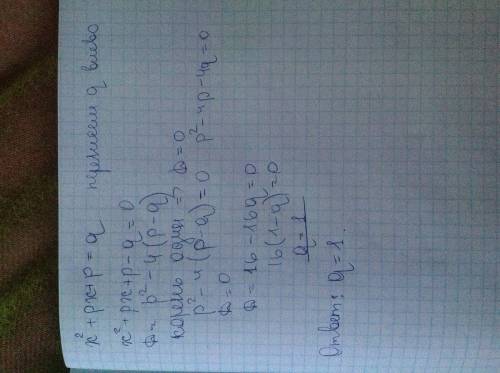 x² + px + p = q переносим q влево
x² + px + p - q = 0
D = p² - 4(p - q)
корень один => D = 0
p² - 4(p - q) = 0 p² - 4p - 4q = 0
D = 0
D = 16 - 16q = 0
16(1 - q) = 0
q = 1
Ответ: q = 1.